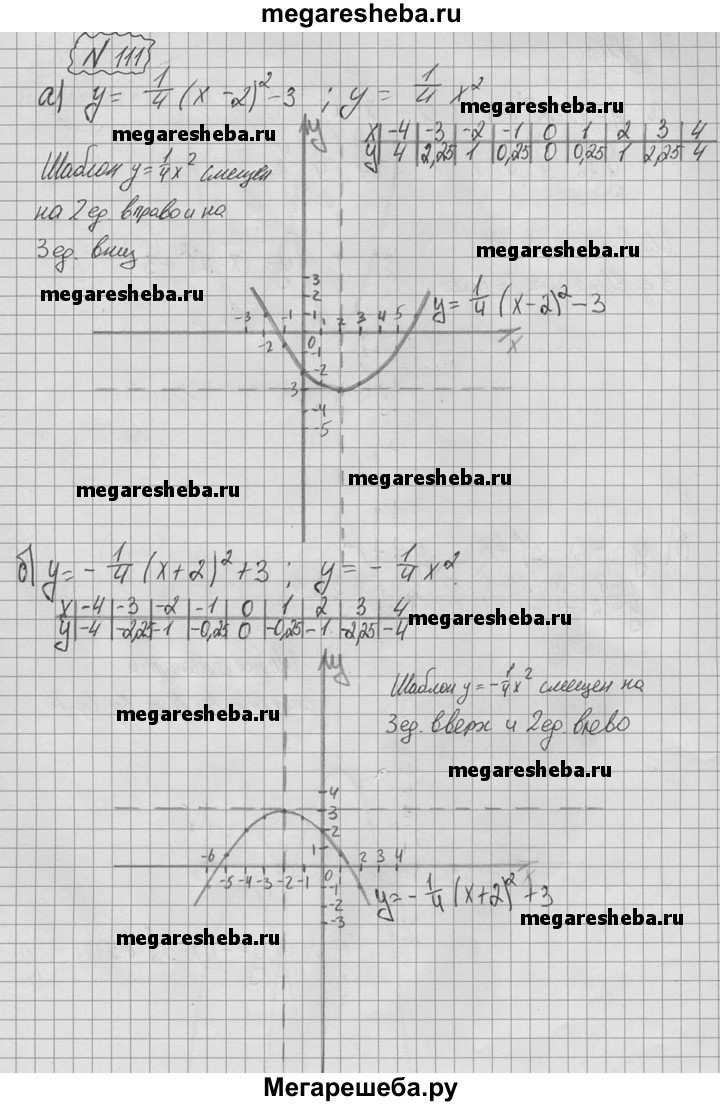 megaresheba.ru
N 111
а) y = 1/4 (x - 2)² - 3 ; y = 1/4 x²
megaresheba.ru
megaresheba.ru
y
x -4 -3 -2 -1 0 1 2 3 4
y 4 2,25 1 0,25 0 0,25 1 2,25 4
Шаблон y = 1/4 x² смещен
на 2 ед вправо и на
3 ед. вниз
megaresheba.ru
megaresheba.ru
3
2
1
y = 1/4 (x - 2)² - 3
-3 -2 -1 0 1 2 3 4 5
x
-1
-2
3
-4
-5
megaresheba.ru
megaresheba.ru
б) y = - 1/4 (x + 2)² + 3 ; y = - 1/4 x²
x -4 -3 -2 -1 0 1 2 3 4
y -4 -2,25 -1 -0,25 0 -0,25 -1 -2,25 -4
megaresheba.ru
y
Шаблон y = - 1/4 x² смещен на
3 ед. вверх и 2 ед. влево
megaresheba.ru
megaresheba.ru
4
3
2
1
-6 -5 -4 -3 -2 -1 0 2 3 4
x
-1
-2
-3
y = - 1/4 (x + 2)² + 3
megaresheba.ru
megaresheba.ru
Мегарешеба.ру